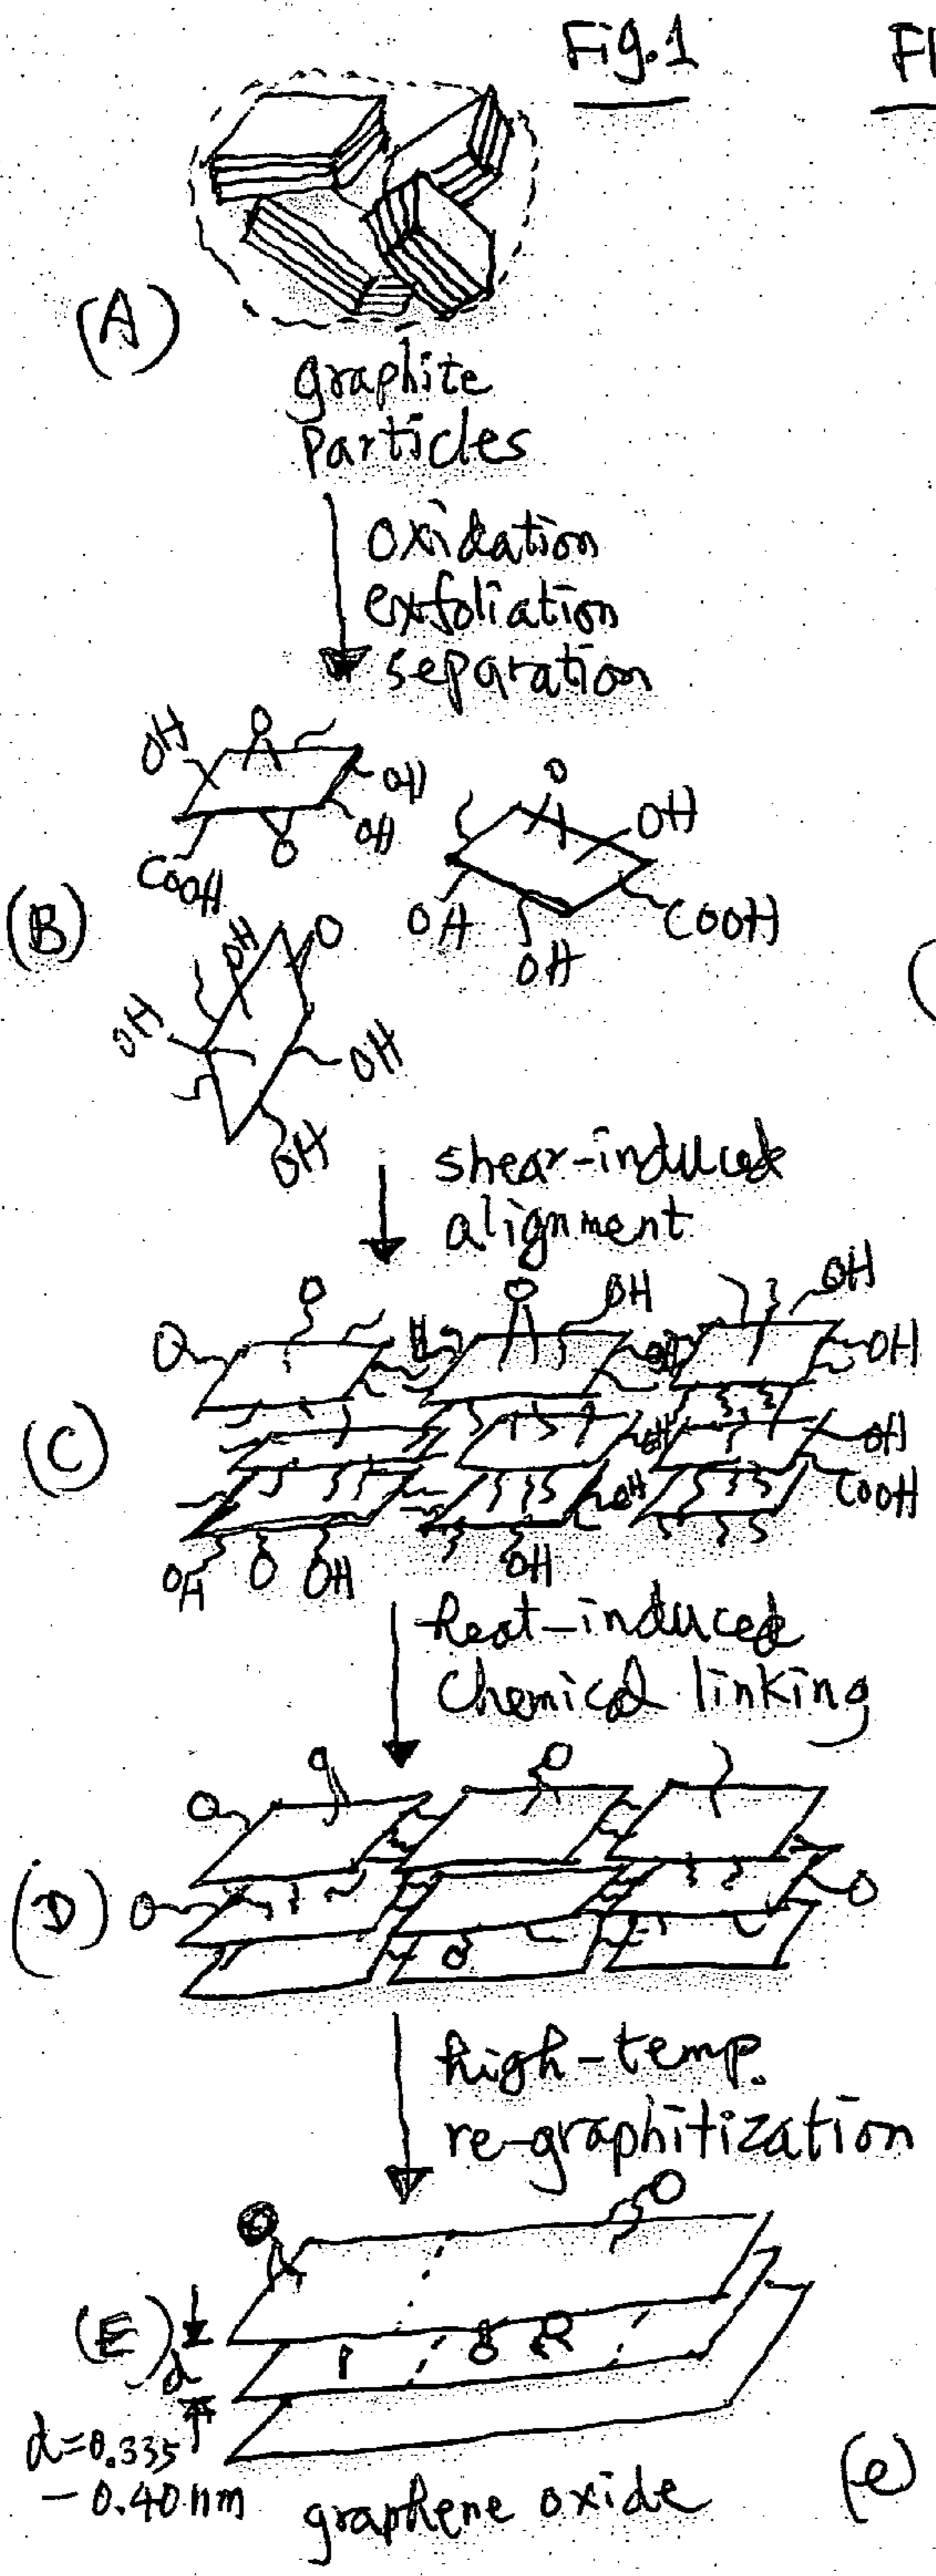 Fig.1
(A)
graphite
particles
oxidation
exfoliation
separation
(B)
OH
O
OH
OH
O
COOH
O
OH
OH
OH
COOH
OH
O
OH
OH
OH
shear-induced
alignment
(C)
O
O
O
OH
OH
OH
OH
OH
OH
OH
COOH
OH
O
OH
OH
heat-induced
chemical linking
(D)
O
O
O
O
O
O
high-temp.
re-graphitization
(E)
O
O
d
d=0.335
- 0.40 nm
graphene oxide
(e)